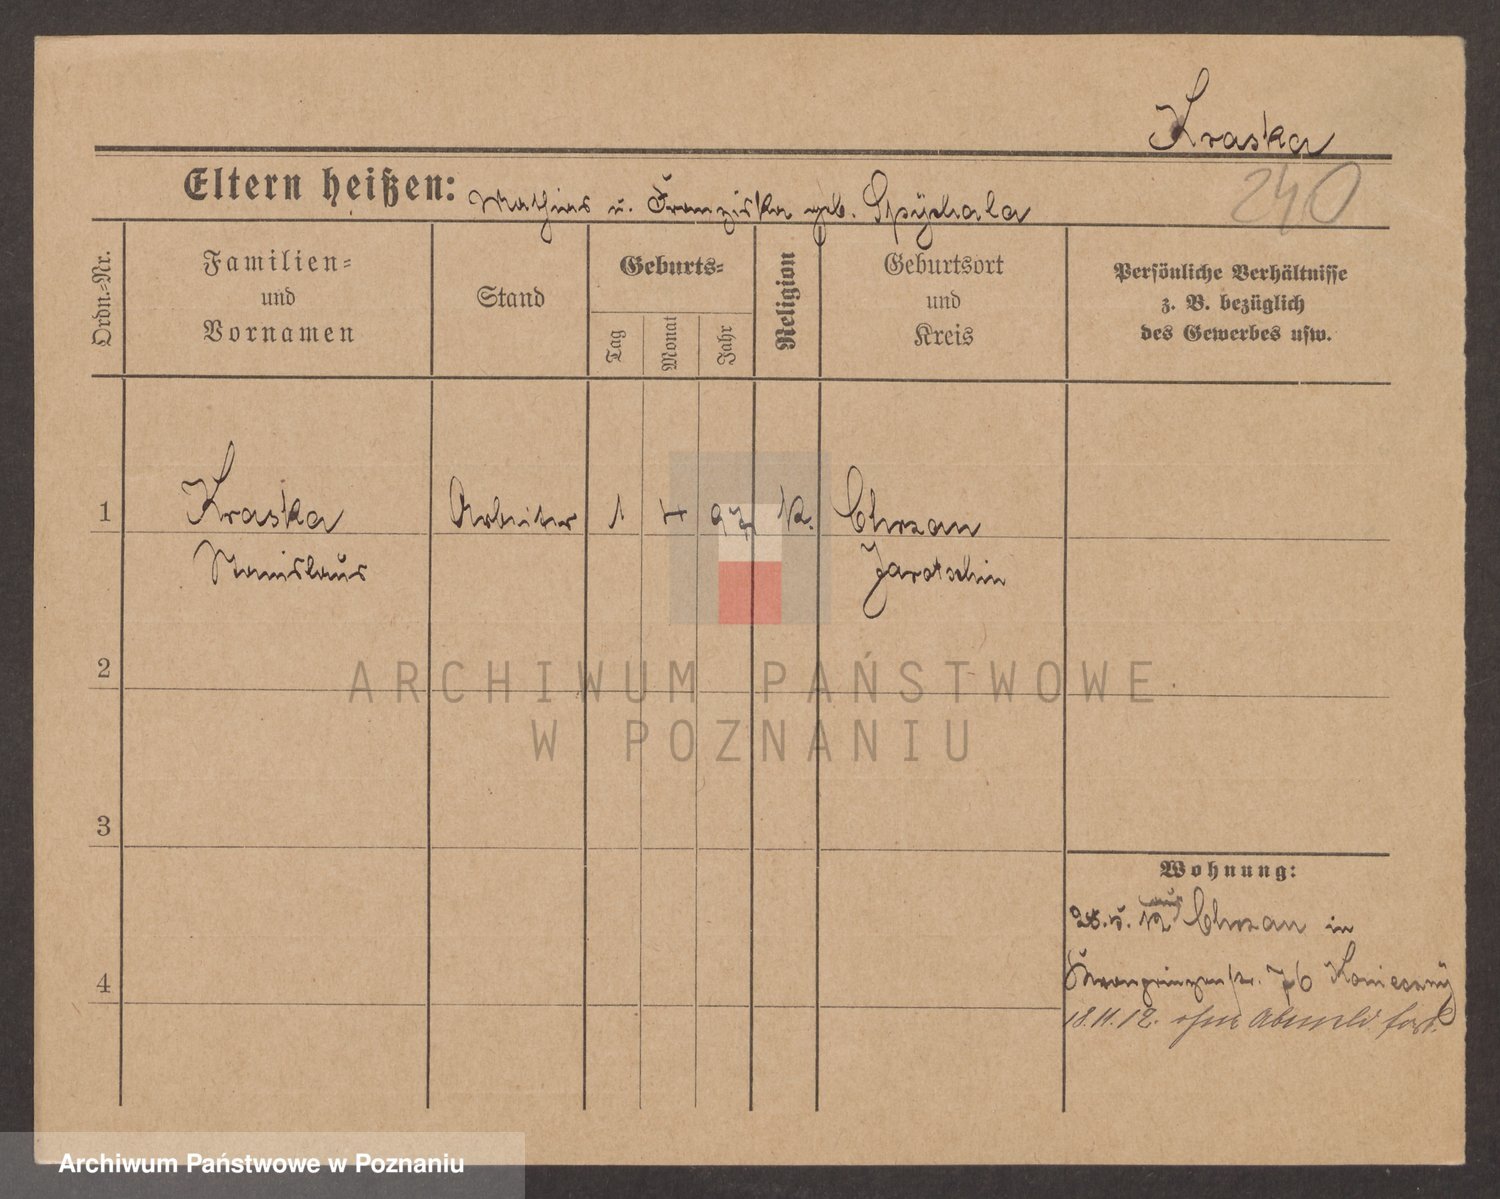 Kraska
240
Eltern heißen: Mathias u. Franziska geb. Spÿchala
Ordn.-Nr.
Familien-
und
Vornamen
Stand
Geburts-
Tag
Monat
Jahr
Religion
Geburtsort
und
Kreis
Persönliche Verhältnisse
z. B. bezüglich
des Gewerbes usw.
1
Kraska
Stanislaus
Arbeiter
1
4
K.
Chrzan
Jarotschin
2
3
4
Wohnung:
28.5.12 aus Chrzan in
Kronprinzenstr. 76
18.11.12. ohne Abmeld fort.
ARCHIWUM PAŃSTWOWE
W POZNANIU
Archiwum Państwowe w Poznaniu